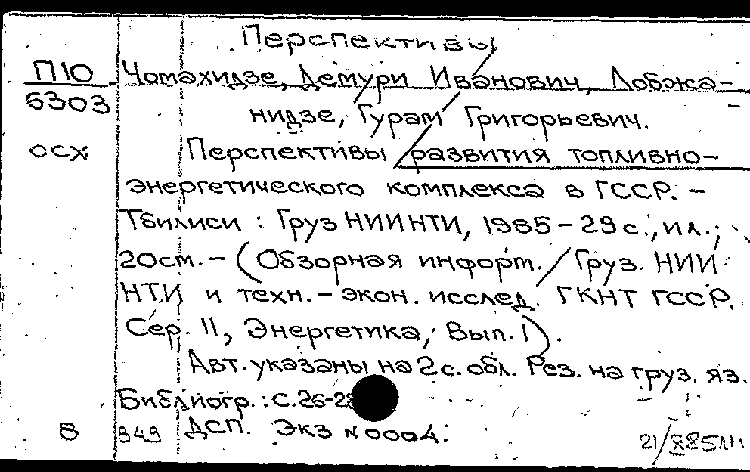 Перспективы
П10 Чомахидзе, Демури Иванович, Лобжа-
6303 нидзе, Гурам Григорьевич.
осх Перспективы / развития топливно-
энергетического комплекса в ГССР. -
Тбилиси : Груз НИИНТИ, 1985 - 29 с., ил.;
20см. - (Обзорная информ. / Груз. НИИ
НТИ и техн. - экон. исслед. ГКНТ ГССР.
Сер. 11, Энергетика; Вып. 1).
Авт. указаны на 2 с. обл. Рез. на груз. яз.
Библиогр.: с. 26-
Б 949 ДСП. Экз N 0004.